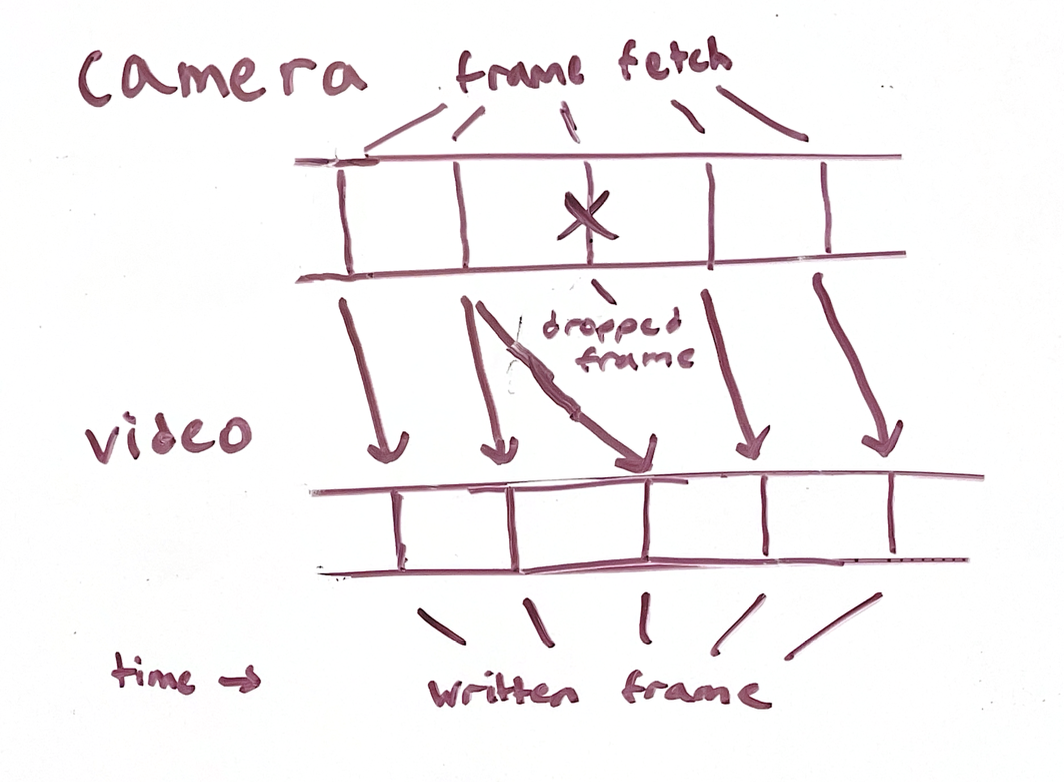 Camera
frame fetch
dropped
frame
video
time →
written frame